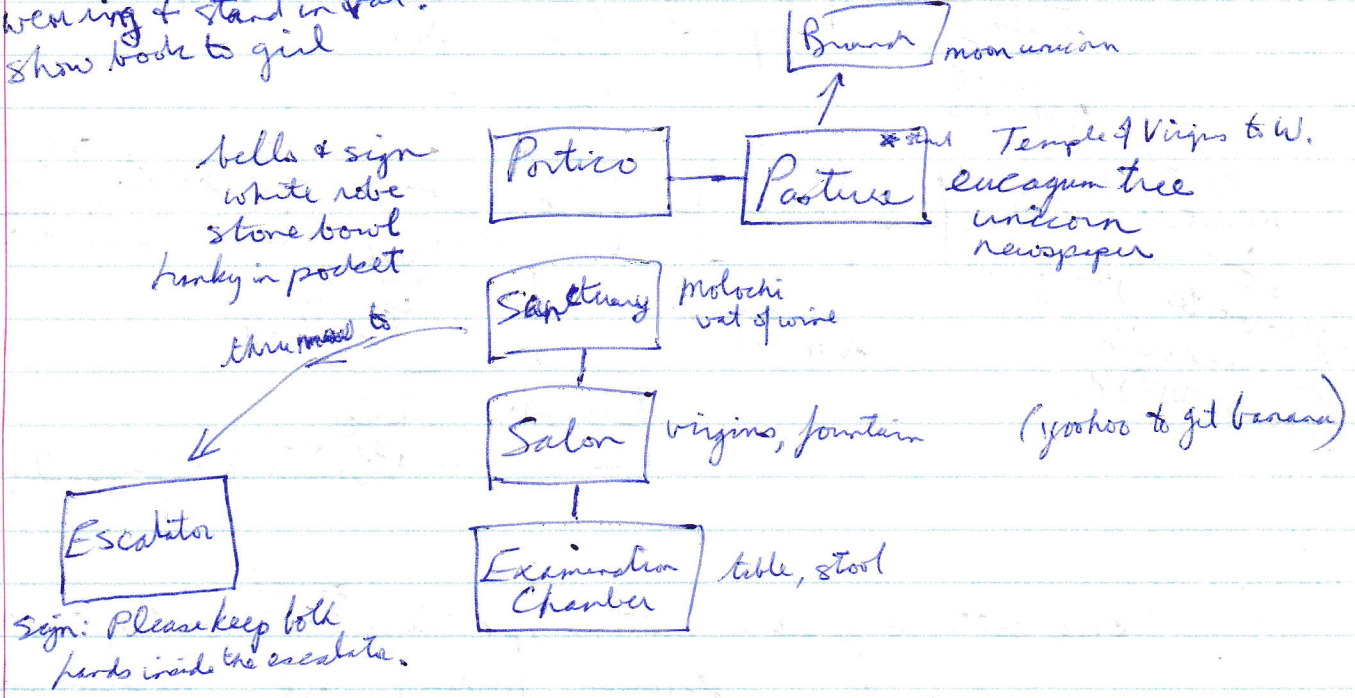 wear ring & stand in
show book to girl
Branch
moon unicorn
bells & sign
white robe
stone bowl
hanky in pocket
Portico
Pasture
Temple of Virgins to W.
eucagum tree
unicorn
newspaper
Sanctuary
Molochi
vat of wine
thru to
Salon
virgins, fountain
(yoohoo to get banana)
Escalator
Examination
Chamber
table, stool
Sign: Please keep both
hands inside the escalator.